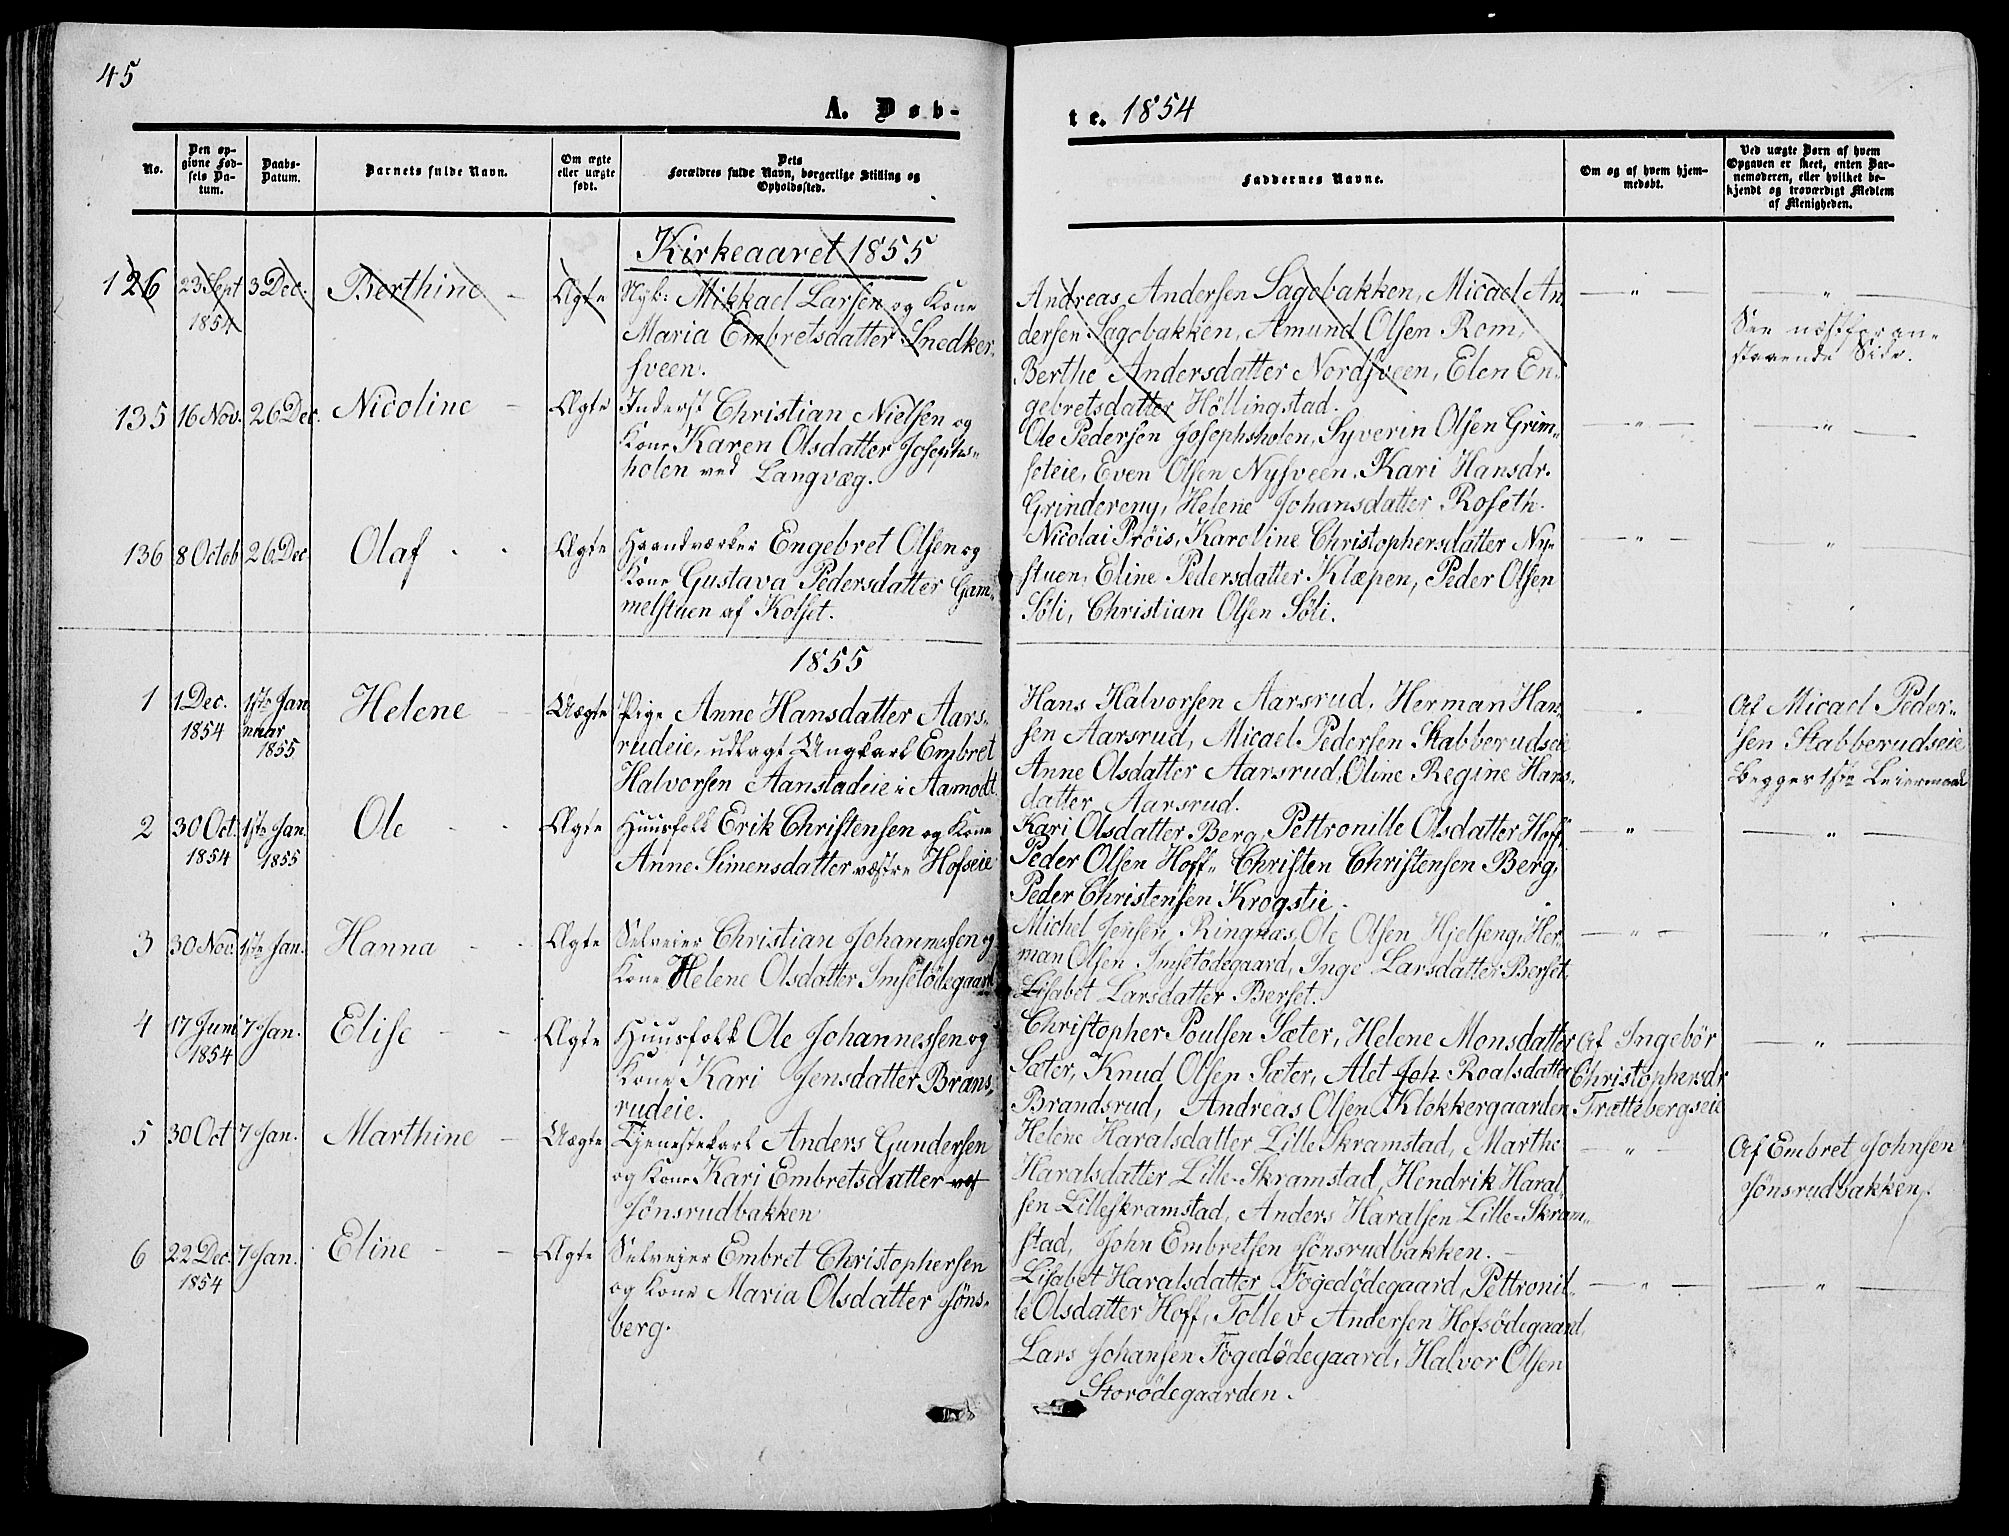 45
A. Døb-
te. 1854
No.
Den op-
givne Fød-
sels Da-
tum.
Daabs-
Datum.
Barnets fulde Navn.
Om ægte
eller uægte
født.
Dets
Forældres fulde Navn, borgerlige Stilling og
Opholdssted.
Faddernes Navne.
Om og af hvem hjem-
medøbt.
Ved uægte Børn af hvem
Opgaven er skeet, enten Bar-
nemoderen, eller hvilket be-
kjendt og troværdigt Medlem
af Menigheden.
Kirkeaaret 1855
126 23 Sept 3 Dec. Berthine - Ægte Nyb: Mikkael Larsen og Kone
1854 Maria Embretsdatter Snedker-
sveen.
Andreas Andersen Sagobakken, Micael An
dersen Sagobakken, Amund Olsen Rom,
Berthe Andersdatter Nordsveen, Elen En-
gebretsdatter Höllingstad.
See næstforan-
staaende Side.
135 16 Nov. 26 Dec. Nicoline - Ægte Inderst Christian Nielsen og
Kone Karen Olsdatter Josephs-
holen ved Langvæg.
Ole Pedersen Josephsholen, Syverin Olsen Grim-
seteie, Even Olsen Nysveen, Kari Hansdr.
Grindereng, Helene Johansdatter Roseth.
136 8 Octob 26 Dec Olaf - - Ægte Haandværker Engebret Olsen og
Kone Gustava Pedersdatter Gam-
melstuen af Kolset.
Nicolai Pröis, Karoline Christophersdatter Ny-
stuen, Eline Pedersdatter Klæpen, Peder Olsen
Söli, Christian Olsen Söli.
1855
1 1 Dec. 1ste Jan Helene - Uægte Pige Anne Hansdatter Aars-
1854 nuar rudeie, udlagt Ungkarl Embret
1855 Halvorsen Aanstadeie i Aamodt
Hans Halvorsen Aarsrud, Herman Han-
sen Aarsrud, Micael Pedersen Stabberudseie
Anne Olsdatter Aarsrud, Oline Regine Hans-
datter Aarsrud.
Af Micael Peder-
sen Stabberudseie
Begges 1ste Leiermaal
2 30 Oct. 1ste Jan. Ole - - Ægte Huusfolk Erik Christensen og Kone
1854 1855 Anne Simensdatter vestre Hofseie
Kari Olsdatter Berg, Pettronille Olsdatter Hoff,
Peder Olsen Hoff, Christen Christensen Berg,
Peder Christensen Krogstie.
3 30 Nov. 1ste Jan. Hanna - - Ægte Selveier Christian Johannessen og
Kone Helene Olsdatter Imsetödegaard
Michel Jensen Ringnæs, Ole Olsen Hjelseng, Her-
man Olsen Imsetödegaard, Inge Larsdatter Berset,
Lisabet Larsdatter Berset.
4 17 Juni 7 Jan. Elise - - Ægte Huusfolk Ole Johannessen og
1854 Kone Kari Jensdatter Brans-
rudeie.
Christopher Poulsen Sæter, Helene Monsdatter
Sæter, Knud Olsen Sæter, Alet Joh. Roalsdatter
Brandsrud, Andreas Olsen Klokkergaarden
Af Ingebör
Christophersdr
Trættebergseie
5 30 Oct 7 Jan. Marthine - Uægte Tjenestekarl Anders Gundersen
og Kone Kari Embretsdatter
Jönsrudbakken
Helene Haralsdatter Lille Skramstad, Marthe
Haralsdatter Lille-Skramstad, Hendrik Haral-
sen Lilleskramstad, Anders Haralsen Lille-Skram-
stad, John Embretsen Jönsrudbakken.
Af Embret Johnsen
Jönsrudbakken.
6 22 Dec. 7 Jan. Eline - - Ægte Selveier Embret Christophersen
1854 og Kone Maria Olsdatter Jöns-
berg.
Lisabet Haralsdatter Fogedödegaard, Pettronil-
le Olsdatter Hoff, Tollev Andersen Hofsödegaard,
Lars Johansen Fogedödegaard, Halvor Olsen
Storödegaarden.